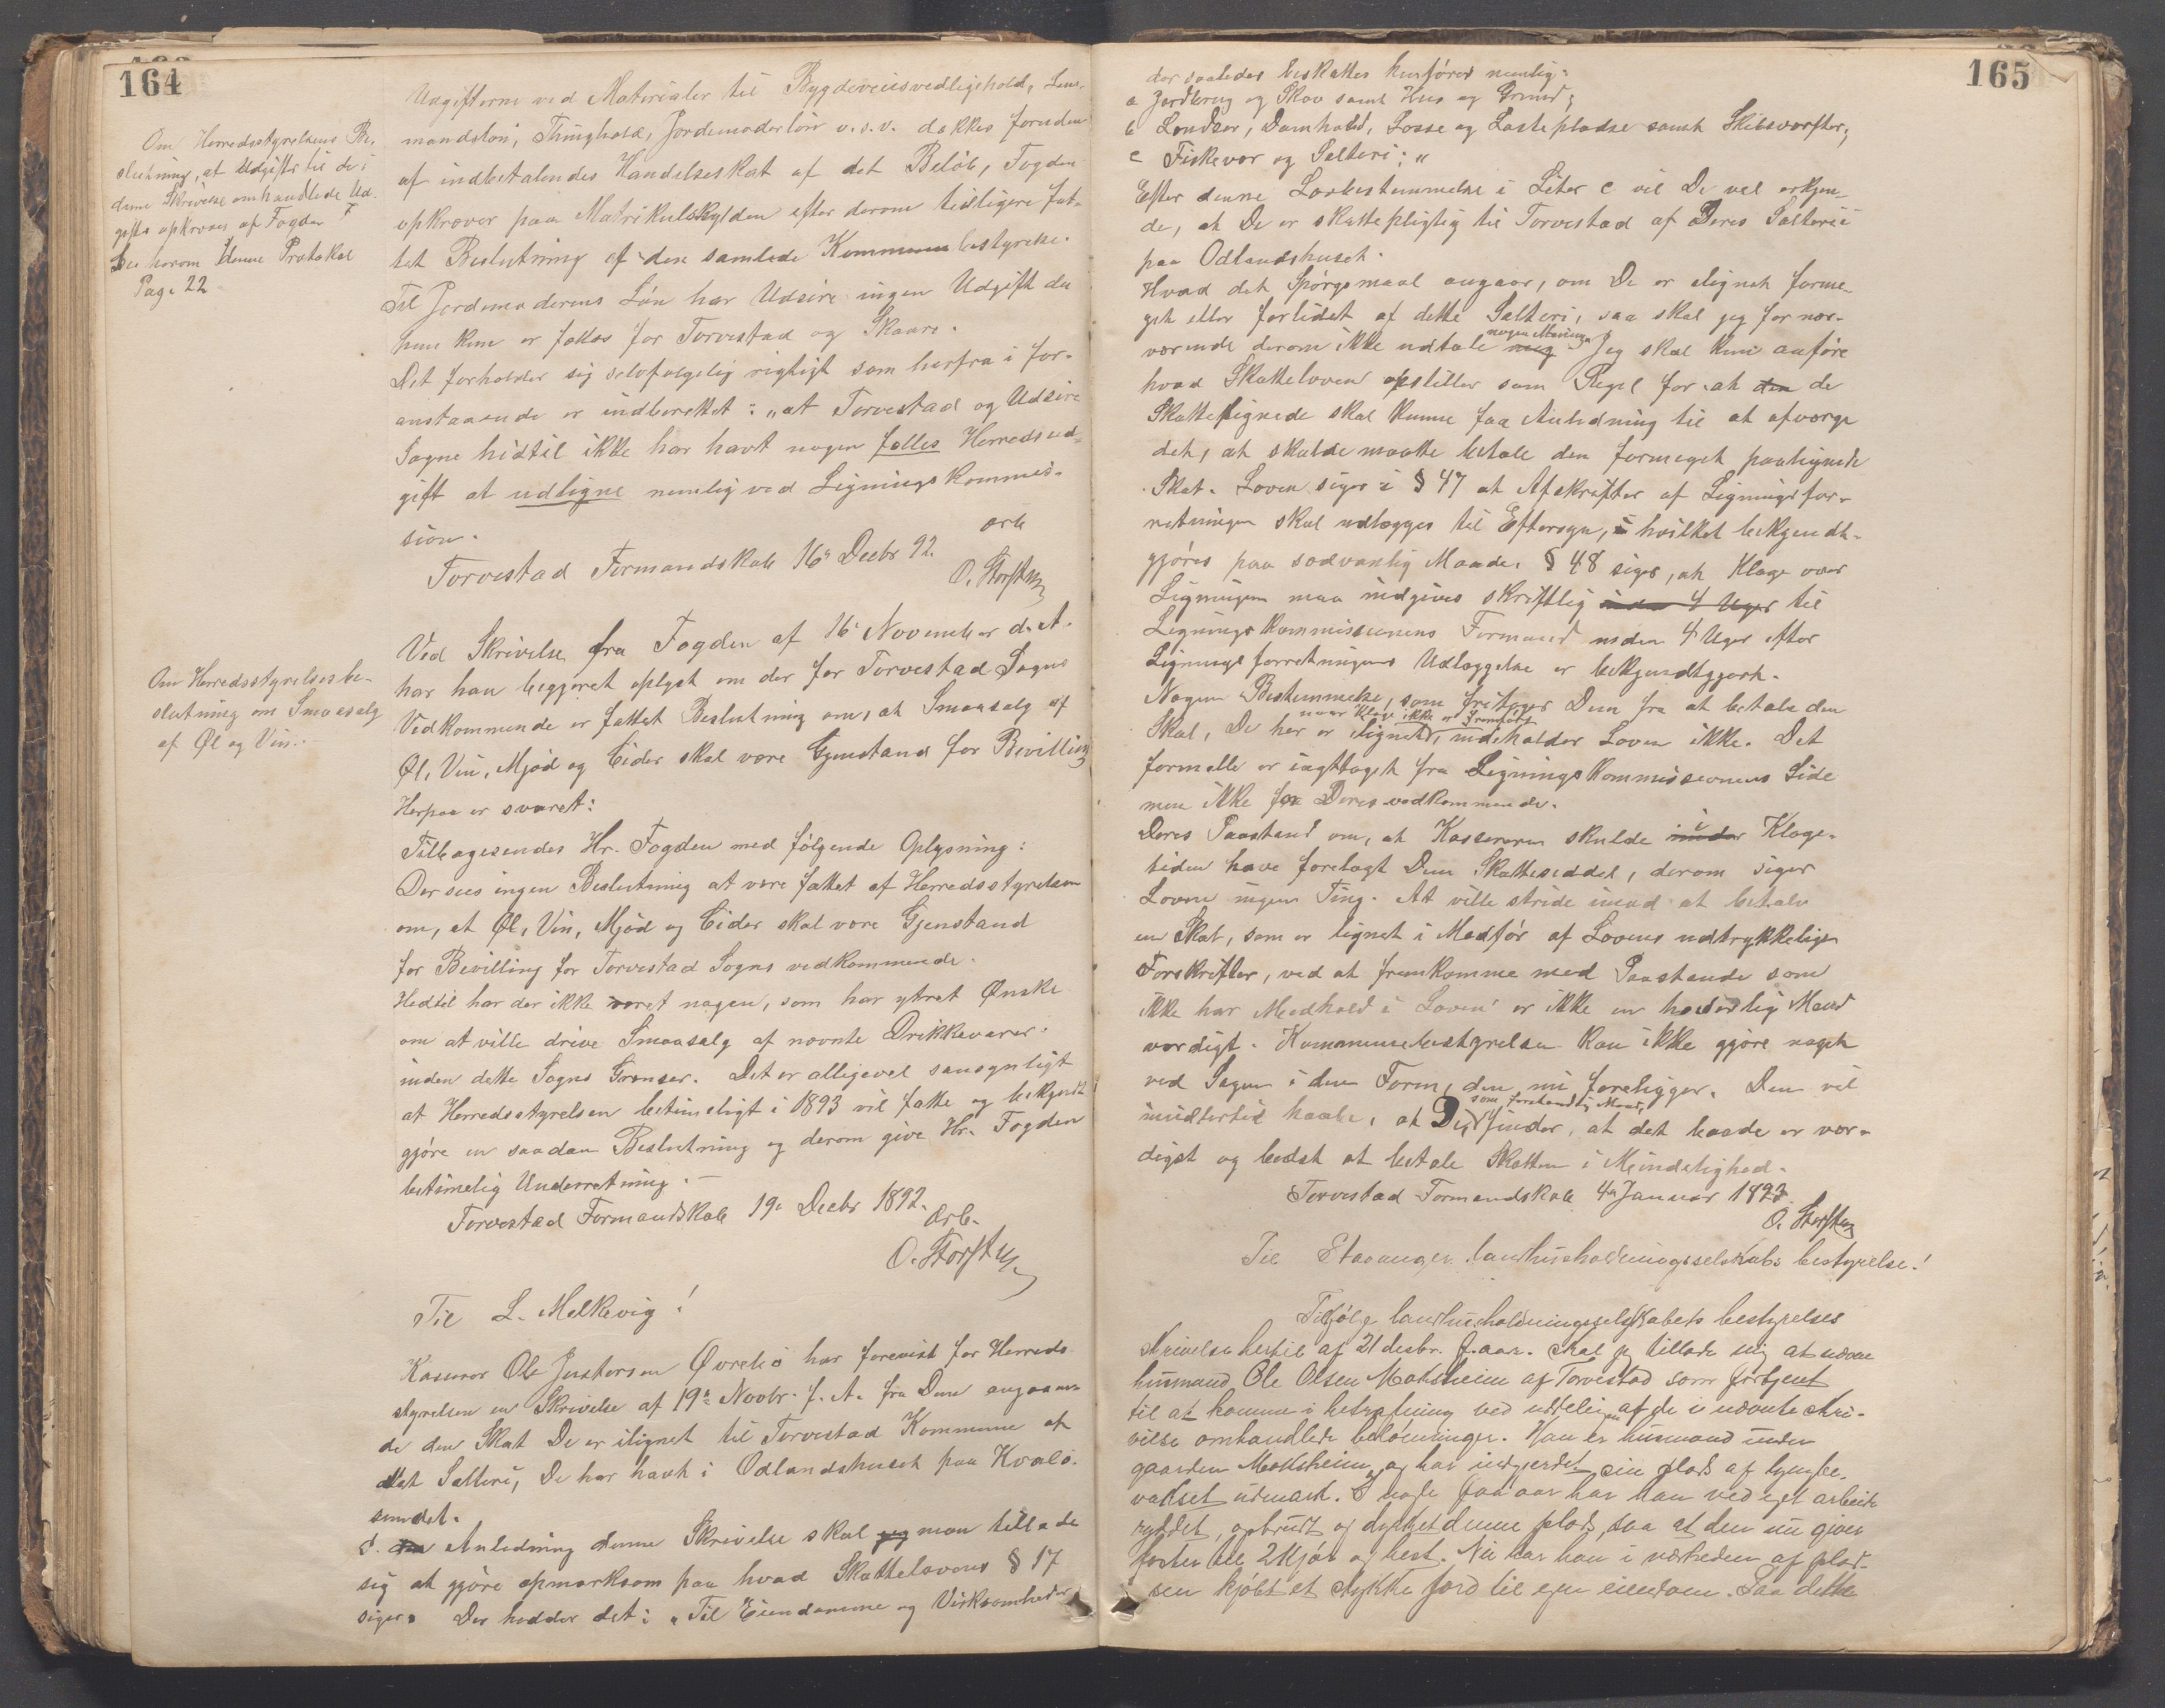 164
Om Herredsstyrelsens Be-
slutning, at Udgifter til de i
denne Skrivelse omhandlede Ud-
gifts opkræves af Fogden
See herom denne Protokol
Page 22
Udgifterne ved Materialer til Bygdeveiesvedligehold, Lens-
mandsløn, Thinghold, Jordemoderløn o.s.v. dækkes foruden
af indbetalendes Handelsskat af det Beløb, Fogden
opkræver paa Matrikulskylden efter derom tidligere fat-
tet Beslutning af den samlede Kommunebestyrelse.
Til Jordemoderens Løn har Udsire ingen Udgift da
hun kun er fælles for Torvestad og Skaare.
Det forholder sig selvfølgelig rigtigt som herfra i for-
anstaaende er indberettet: „at Torvestad og Udsire
Sogne hidtil ikke har havt nogen fælles Herredsud-
gift at udligne nemlig ved Ligningskommis-
sion.
Torvestad Formandskab 16 Decbr 92.
arb
O. Storsten
Om Herredsstyrelsesbe-
slutning om Smaasalg
af Øl og Vin.
Ved Skrivelse fra Fogden af 16 November d. A.
har han begjæret oplyst om der for Torvestad Sogns
Vedkommende er fattet Beslutning om, at Smaasalg af
Øl, Vin, Mjød og Cider skal være Gjenstand for Bevilling
Herpaa er svaret:
Tilbagesendes Hr. Fogden med følgende Oplysning:
Der sees ingen Beslutning at være fattet af Herredsstyrelsen
om, at Øl, Vin, Mjød og Cider skal være Gjenstand
for Bevilling for Torvestad Sogns vedkommende.
Hidtil har der ikke været nogen, som har ytret Ønske
om at ville drive Smaasalg af nævnte Drikkevarer
inden dette Sogns Grænser. Det er alligevel sansynligt
at Herredsstyrelsen betimeligt i 1893 vil fatte og bekjendt
gjøre en saadan Beslutning og derom give Hr. Fogden
betimelig Underretning.
Torvestad Formandskab 19 Decbr 1892.
Arb.
O. Storsten
Til L. Melkevig!
Kasserer Ole Justersen Øvrebø har forevist for Herreds
styrelsen en Skrivelse af 19 Novbr. f. A. fra Dem angaaen-
de den Skat De er ilignet til Torvestad Kommune af
det Salteri, De har havt i Odlandshuset paa Kvalø-
sundet.
I den Anledning denne Skrivelse skal jeg man tillade
sig at gjøre opmærksom paa hvad Skattelovens § 17
siger. Der hedder det: „Til Eiendomme og Virksomheder
165
der saaledes beskattes henføres nemlig:
a Jordbrug og Skov samt Hus og Grund;
b Landsør, Damhold, Losse og Lasteplads samt Skibsværfter;
c Fiskevær og Salteri; "
Efter denne Lovbestemmelse i Liter c vil De vel erkjen-
de, at De er skattepligtig til Torvestad af Deres Salteri
paa Odlandshuset.
Hvad det Spørgsmaal angaar, om De er ilignet forme-
get eller forlidet af dette Salteri, saa skal jeg for nær-
værende derom ikke udtale nogen Mening Jeg skal kun anføre
hvad Skatteloven opstiller som Regel for at den de
Skattelignede skal kunne faa Anledning til at afværge
det, at skulde maatte betale den formeget paalignede
Skat. Loven siger i § 47 at Afskrifter af Ligningsfor-
retningen skal udlægges til Eftersyn, i hvilket bekjendt-
gjøres paa sædvanlig Maade. § 48 siger, at Klage over
Ligningen maa indgives skriftlig inden 4 Uger til
Ligningskommissionens Formand inden 4 Uger efter
Ligningsforretningens Udlæggelse er bekjendtgjort.
Nogen Bestemmelse, som fritager Dem fra at betale den
Skat, De her er ilignet, naar Klage ikke er fremført indeholder Loven ikke. Det
formelle er iagttaget fra Ligningskommissionens Side
men ikke fra Deres vedkommende.
Deres Paastand om, at Kassereren skulde inder i Klage-
tiden have forelagt Dem Skatteseddel, derom siger
Loven ingen Ting. At ville stride imod at betale
en Skat, som er lignet i Medfør af Lovens udtrykkelige
Forskrifter, ved at fremkomme med Paastande som
ikke har Medhold i Loven er ikke en hæderlig Mand
værdigt. Kommunebestyrelsen kan ikke gjøre noget
ved Sagen i den Form, den nu foreligger. Den vil
imidlertid haabe, at De, som forstandig Mand, finder, at det baade er vær-
digst og bedst at betale Skatten i Mindelighed.
Torvestad Formandskab 4 Januar 1893.
O. Storsten
Til Stavanger landhusholdningsselskabs bestyrelse!
Tilfølg landhusholdningsselskabets bestyrelses
skrivelse hertil af 21 desbr. f. aar. skal jeg tillade mig at nævne
husmand Ole Olsen Moksheim af Torvestad som fortjent
til at komme i betragtning ved uddelingen af de i nævnte skri-
velse omhandlede belønninger. Han er husmand under
gaarden Moksheim og har indgjerdet sin plads af lyngbe-
vokset udmark. I nogle faa aar har han ved eget arbeide
ryddet, opbrudt og dyrket denne plads saa at den nu giver
foster til 2 kjør og hest. Nu har han i nærheden af plad-
sen kjøbt et stykke jord til egen eiendom. Saa dette